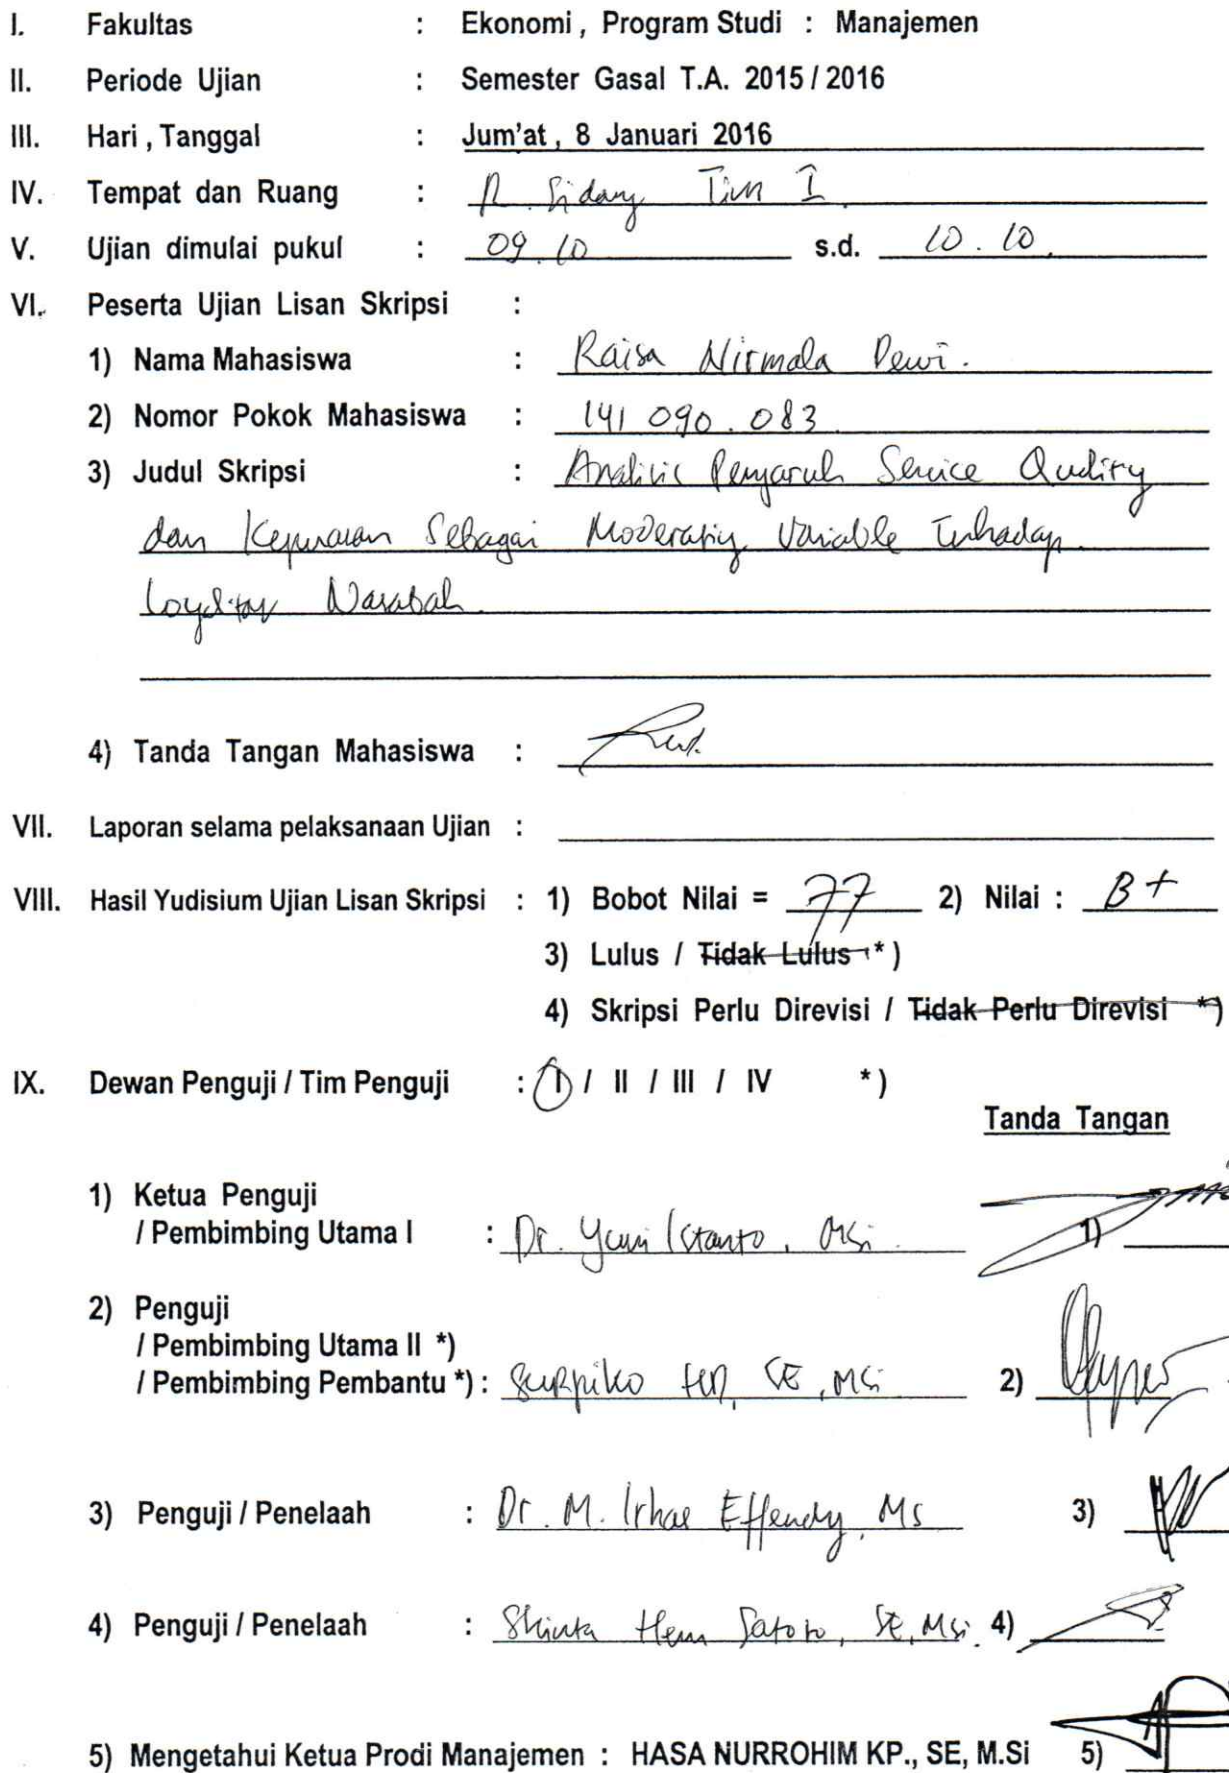 I. Fakultas : Ekonomi , Program Studi : Manajemen
II. Periode Ujian : Semester Gasal T.A. 2015 / 2016
III. Hari , Tanggal : Jum'at , 8 Januari 2016
IV. Tempat dan Ruang : R. Sidang Tim I.
V. Ujian dimulai pukul : 09.10 s.d. 10.10.
VI. Peserta Ujian Lisan Skripsi :
1) Nama Mahasiswa : Raisa Nirmala Dewi.
2) Nomor Pokok Mahasiswa : 141 090.083
3) Judul Skripsi : Analisis Pengaruh Service Quality
dan Kepuasan Sebagai Moderating Variable Terhadap
Loyalitas Nasabah.
4) Tanda Tangan Mahasiswa :
VII. Laporan selama pelaksanaan Ujian :
VIII. Hasil Yudisium Ujian Lisan Skripsi : 1) Bobot Nilai = 77 2) Nilai : B+
3) Lulus / Tidak Lulus *)
4) Skripsi Perlu Direvisi / Tidak Perlu Direvisi *)
IX. Dewan Penguji / Tim Penguji : I / II / III / IV *)
Tanda Tangan
1) Ketua Penguji
/ Pembimbing Utama I : Dr. Yuni Istanto, MSi. 1)
2) Penguji
/ Pembimbing Utama II *)
/ Pembimbing Pembantu *) : SE, MSi 2)
3) Penguji / Penelaah : Dr. M. Irhas Effendy, Ms 3)
4) Penguji / Penelaah : Shinta Heru Satoto, SE, MSi. 4)
5) Mengetahui Ketua Prodi Manajemen : HASA NURROHIM KP., SE, M.Si 5)